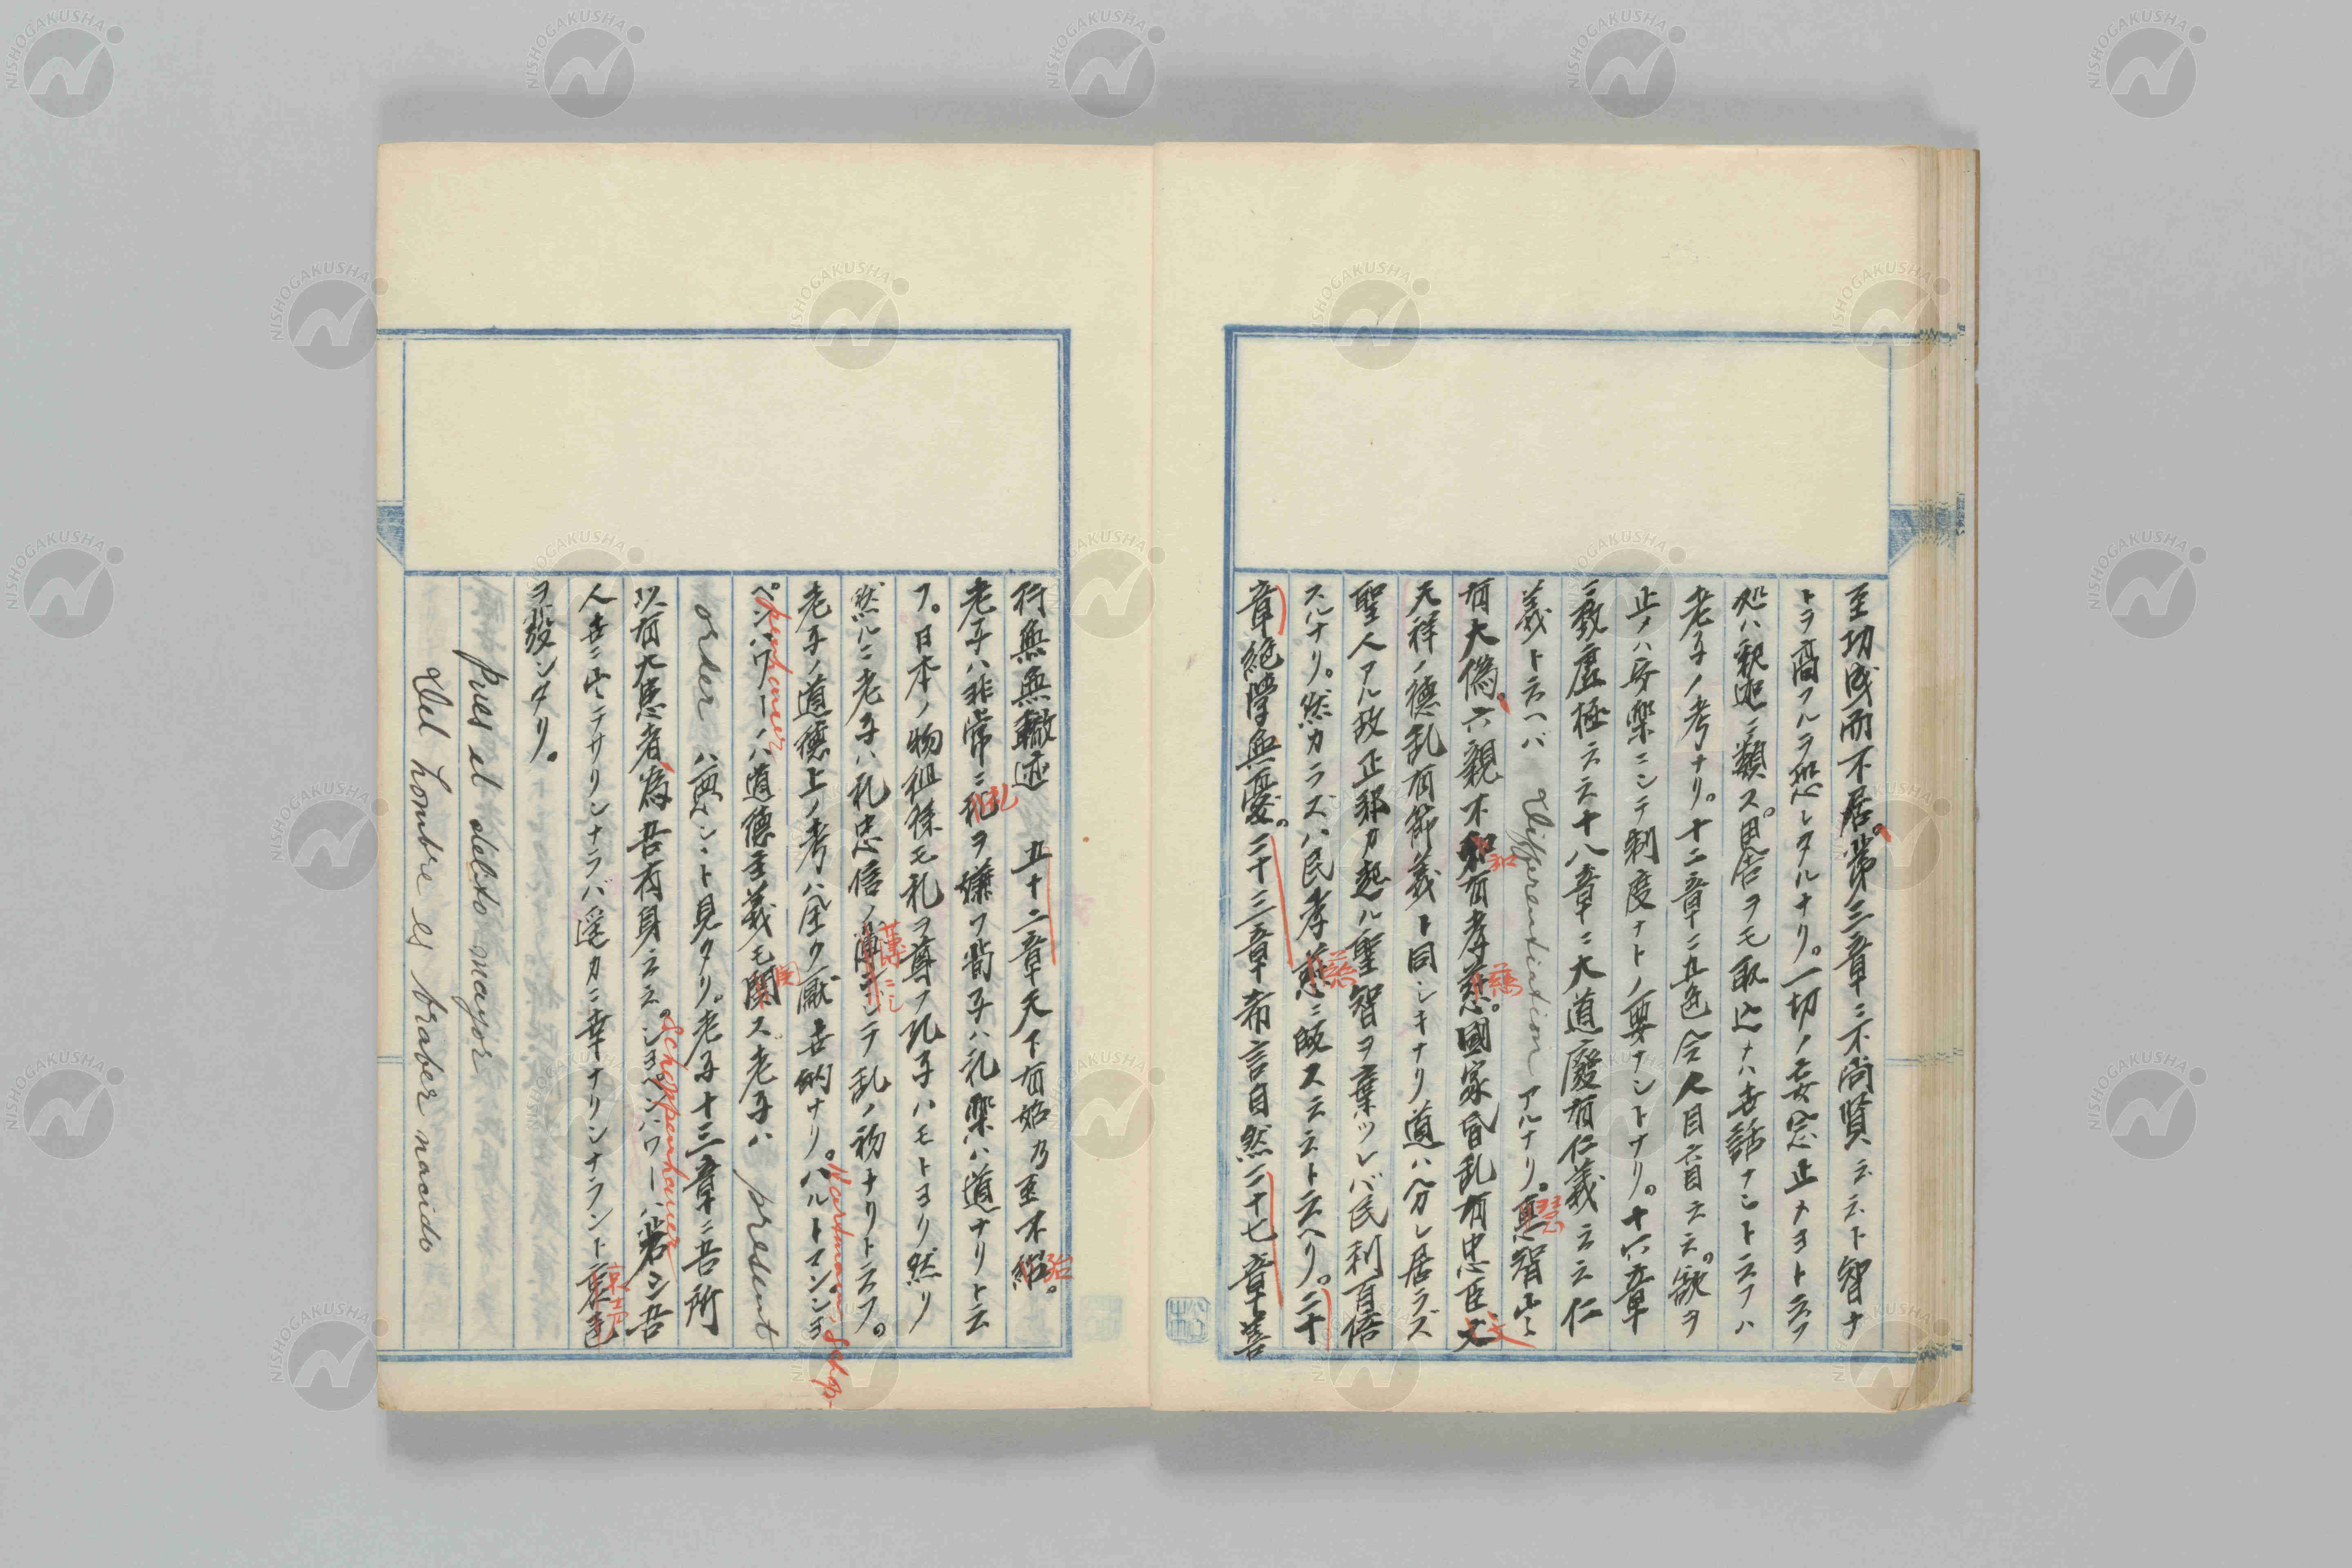 至功成而不居。第三章ニ不尚賢云云ト智ナ
トラ高フルヲ恐レタルナリ。一切ノ妄念止メヨト云フ
処ハ釈迦ニ類ス。思惟ヲモ取込ナハ無話ナシト云フハ
老子ノ考ナリ。十二章ニ五色令人目盲云云。欲ヲ
止メハ安楽ニシテ制度ナトノ要ナシトナリ。十六章
ニ致虚極云云十八章ニ大道廢有仁義云云仁
義ト云ヘバ Differentiation アルナリ。慧智出
有大偽。六親不和有孝慈。國家昏乱有忠臣文
天祥ノ德乱有節義ト同シキナリ道ハ分レ居ラズ
聖人アル故正邪カ起ル聖智ヲ棄ツレバ民利百倍
スルナリ。然カラズハ民孝慈ニ皈ス云云ト云ヘリ。二十
章絶學無憂。二十三章希言自然二十七章善
行無無轍迹 五十二章天下有始乃至不
老子ハ非常ニ礼ヲ嫌フ荀子ハ礼樂ハ道ナリト云
フ。日本ノ物徂徠モ礼ヲ尊フ孔子ハモトヨリ然リ
然ルニ老子ハ礼忠信ノ薄ニシテ乱ノ初ナリト云フ。
老子ノ道德上ノ考ハ全ク厭世的ナリ。ハルトマンシヨ
Hartmann, Schop-
ペンハワーノハ道德主義モ関ス老子ハ present
penhauer
order ハ悪シヽト見タリ。老子十三章ニ吾所
以有大患者為吾有身云云。シヨペンハワーハ若シ吾
Schoppenhauer
人世ニ出テサリシナラバ遙カニ幸ナリシナラント哀
ヲ發シタリ。
Pues el delito mayor
Del hombre es braber nacido